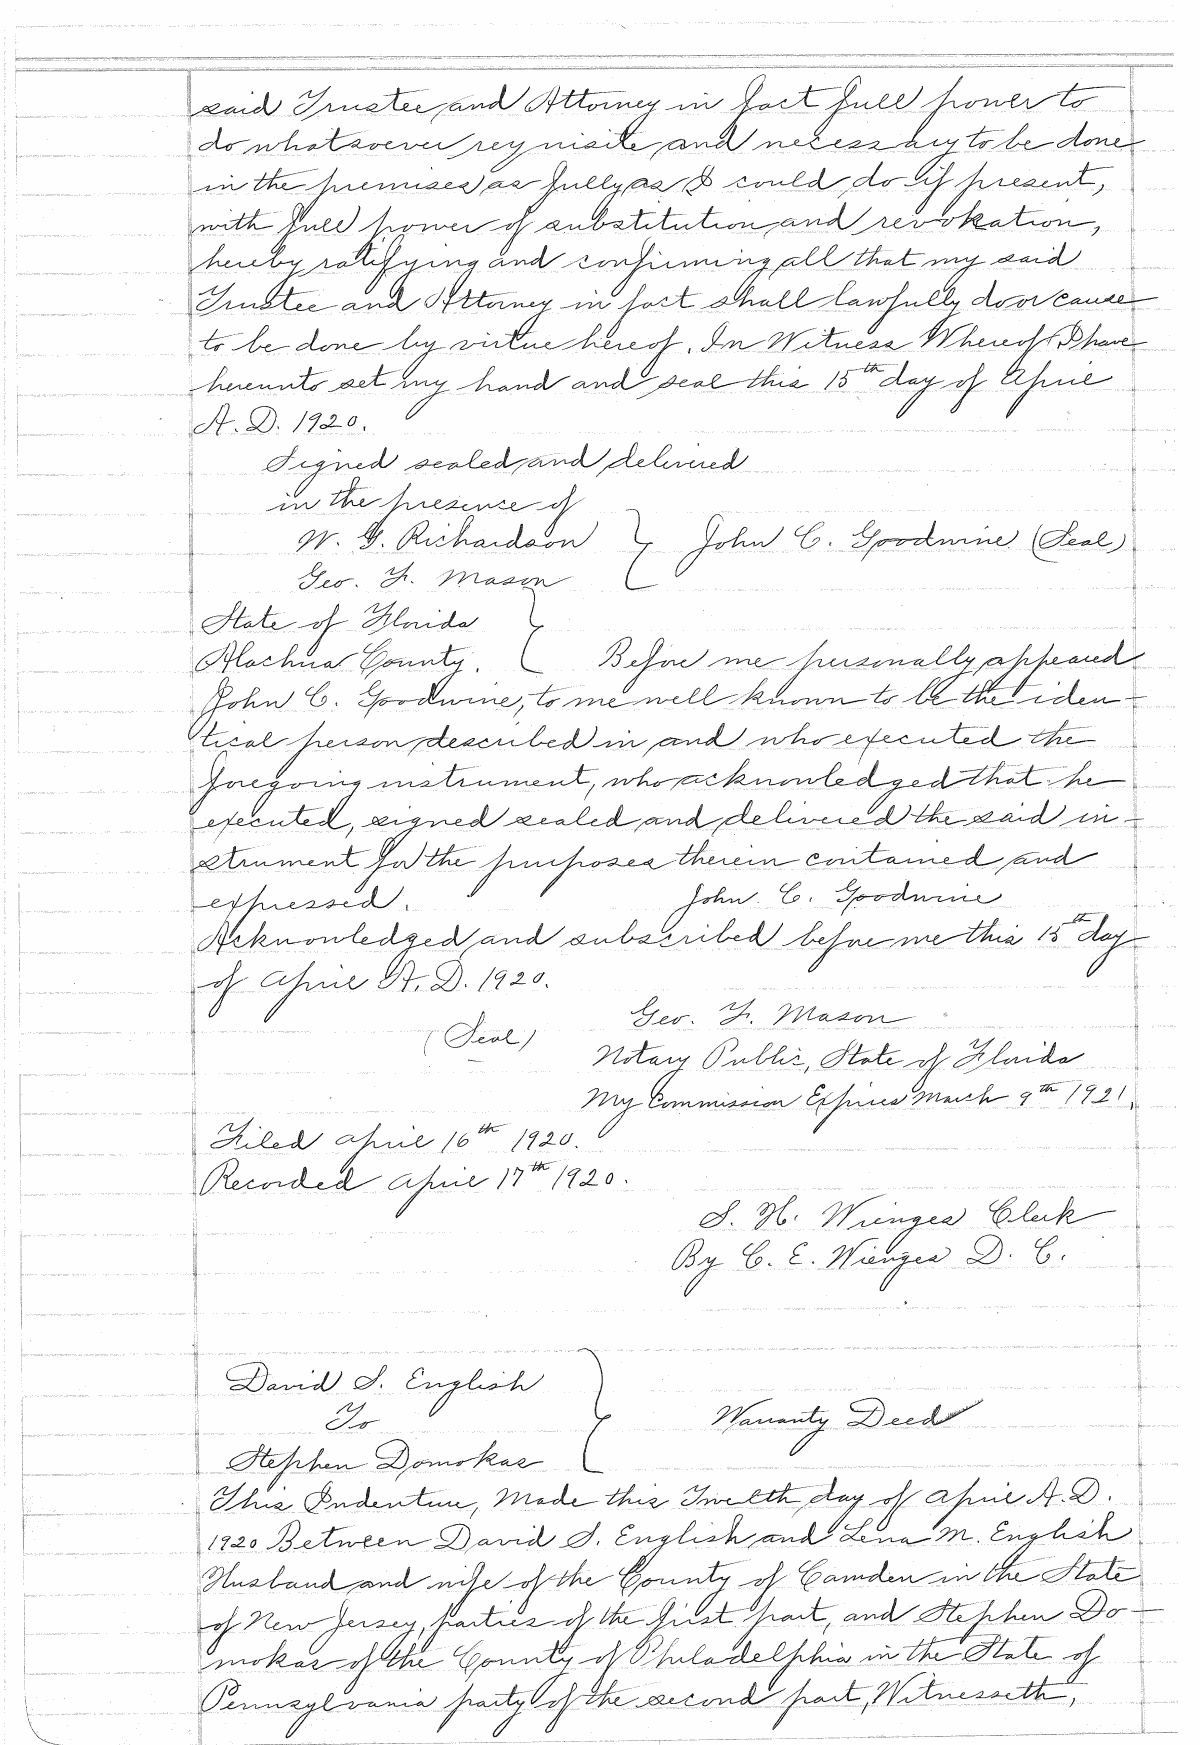 said Trustee and Attorney in fact full power to
do whatsoever requisite and necessary to be done
in the premises as fully as I could do if present,
with full power of substitution and revokation,
hereby ratifying and confirming all that my said
Trustee and Attorney in fact shall lawfully do or cause
to be done by virtue hereof. In Witness Whereof I have
hereunto set my hand and seal this 15th day of April
A. D. 1920.
Signed sealed and delivered
in the presence of
W. G. Richardson } John C. Goodwine (Seal)
Geo. F. Mason
State of Florida }
Alachua County. Before me personally appeared
John C. Goodwine, to me well known to be the iden-
tical person described in and who executed the
foregoing instrument, who acknowledged that he
executed, signed sealed and delivered the said in-
strument for the purposes therein contained and
expressed. John C. Goodwine
Acknowledged and subscribed before me this 15th day
of April A. D. 1920.
Geo. F. Mason
(Seal)
Notary Public, State of Florida
My Commission Expires March 9th 1921.
Filed April 16th 1920.
Recorded April 17th 1920.
S. H. Wienges Clerk
By C. E. Wienges D. C.
David S. English
To } Warranty Deed
Stephen Domokas
This Indenture, Made this Twelth day of April A. D.
1920 Between David S. English and Lena M. English
Husband and wife of the County of Camden in the State
of New Jersey, parties of the first part, and Stephen Do-
mokas of the County of Philadelphia in the State of
Pennsylvania party of the second part, Witnesseth,